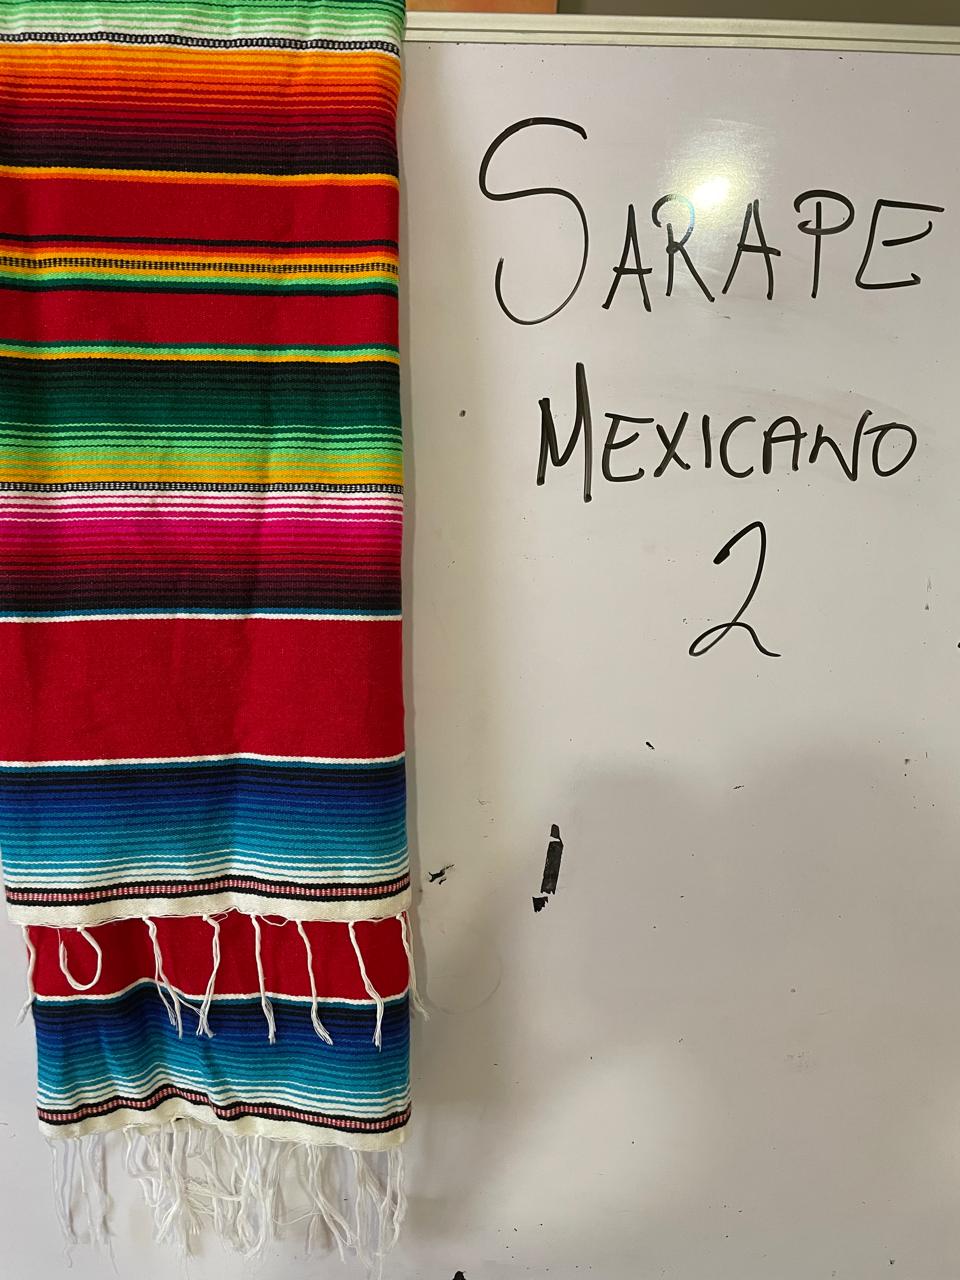 SARAPE
MEXICANO
2